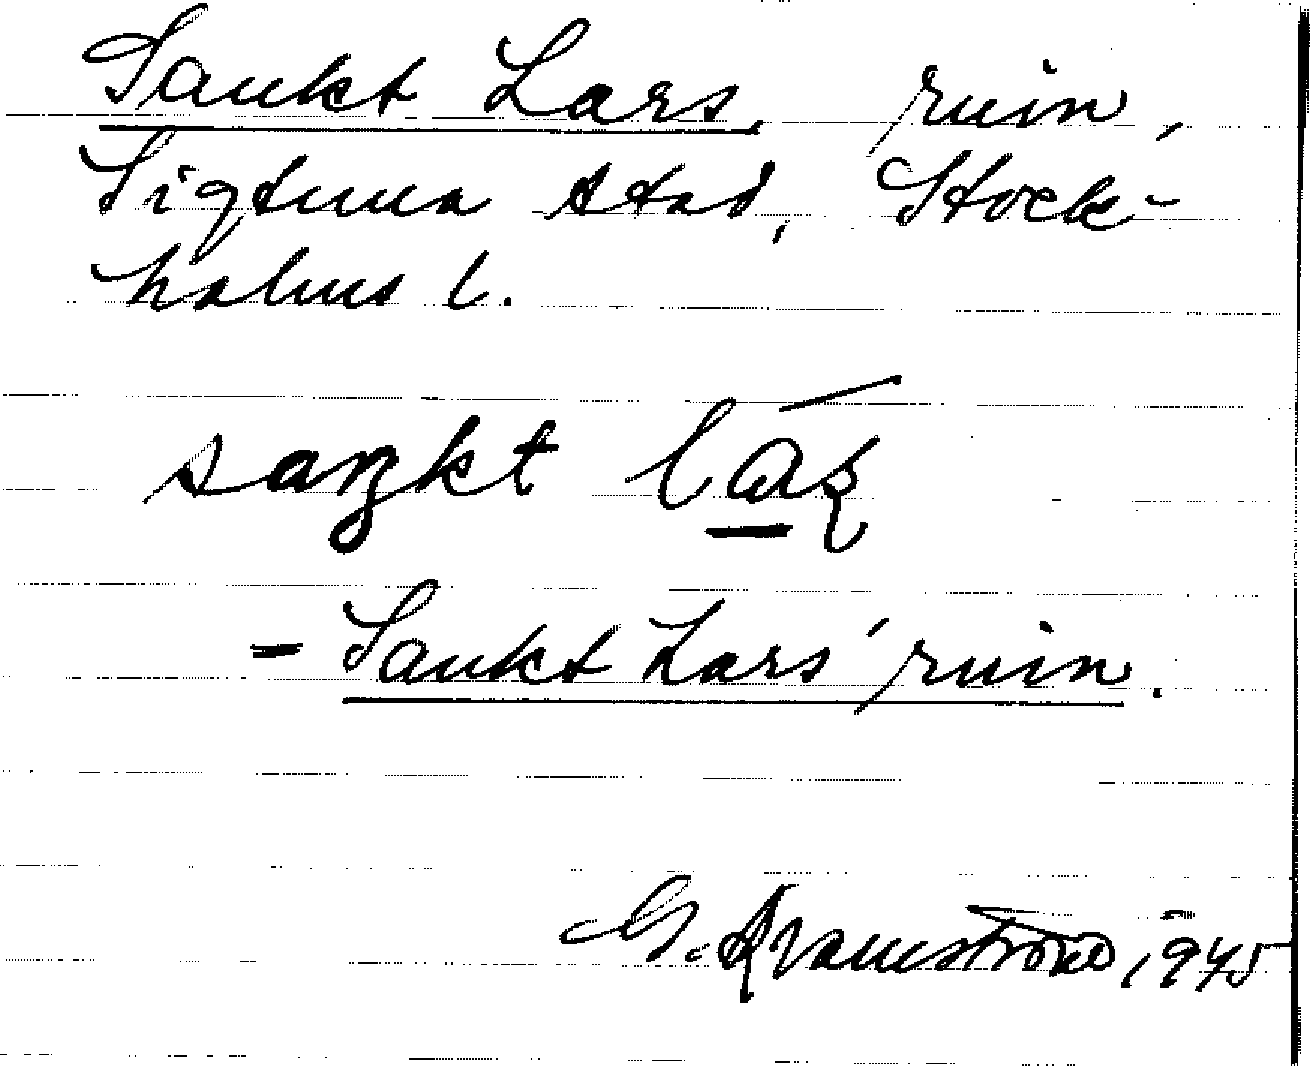 Sankt Lars, ruin,
Sigtuna stad, Stock-
holms l.
saŋkt láʂ
- Sankt Lars' ruin.
G. Kvarnström, 1945